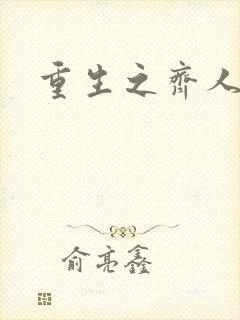 重生之齊人
俞亮鑫